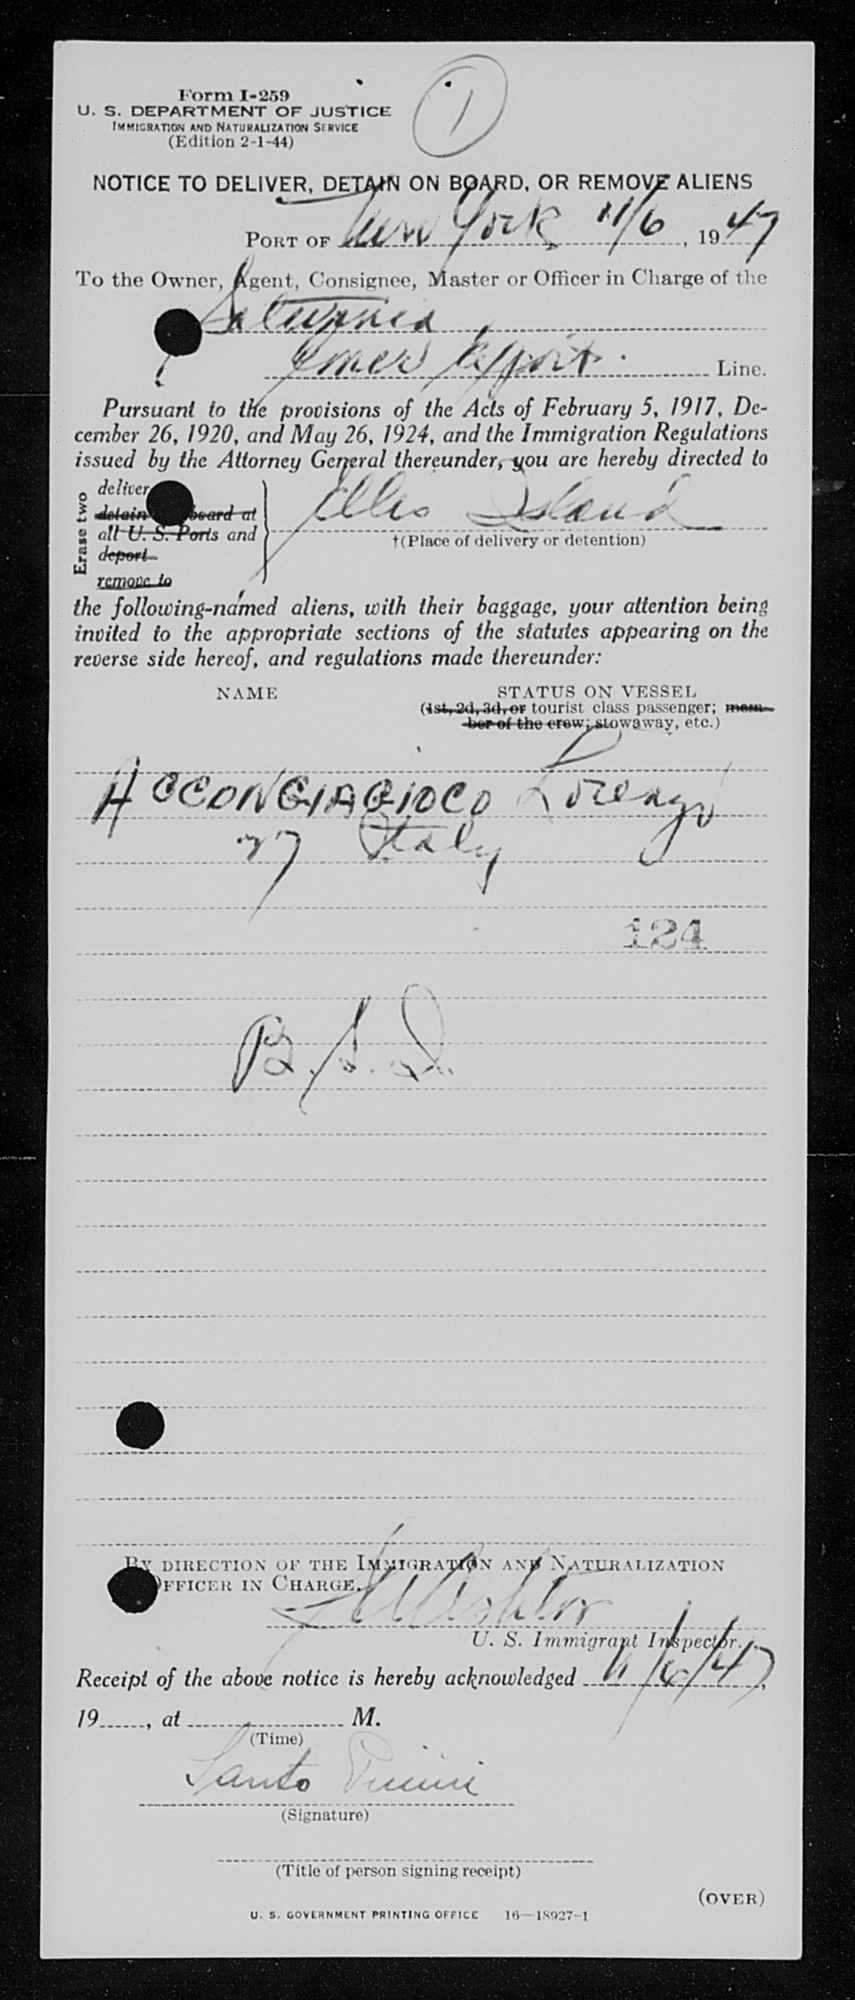 1
Form I-259
U. S. DEPARTMENT OF JUSTICE
IMMIGRATION AND NATURALIZATION SERVICE
(Edition 2-1-44)
NOTICE TO DELIVER, DETAIN ON BOARD, OR REMOVE ALIENS
PORT OF New York 11/6, 1947
To the Owner, Agent, Consignee, Master or Officer in Charge of the
Saturnia
Amer Export. Line.
Pursuant to the provisions of the Acts of February 5, 1917, De-
cember 26, 1920, and May 26, 1924, and the Immigration Regulations
issued by the Attorney General thereunder, you are hereby directed to
Erase two
deliver
detain board at
all U. S. Ports and
deport
remove to
Ellis Island
†(Place of delivery or detention)
the following-named aliens, with their baggage, your attention being
invited to the appropriate sections of the statutes appearing on the
reverse side hereof, and regulations made thereunder:
NAME STATUS ON VESSEL
(1st, 2d, 3d, or tourist class passenger; mem-
ber of the crew; stowaway, etc.)
ACCONGIAGIOCO Lorenzo
27 Italy
124
B.S.I.
BY DIRECTION OF THE IMMIGRATION AND NATURALIZATION
OFFICER IN CHARGE.
U. S. Immigrant Inspector.
Receipt of the above notice is hereby acknowledged 11/6/47,
19, at M.
(Time)
Santo
(Signature)
(Title of person signing receipt)
(OVER)
U. S. GOVERNMENT PRINTING OFFICE 16—18927-1